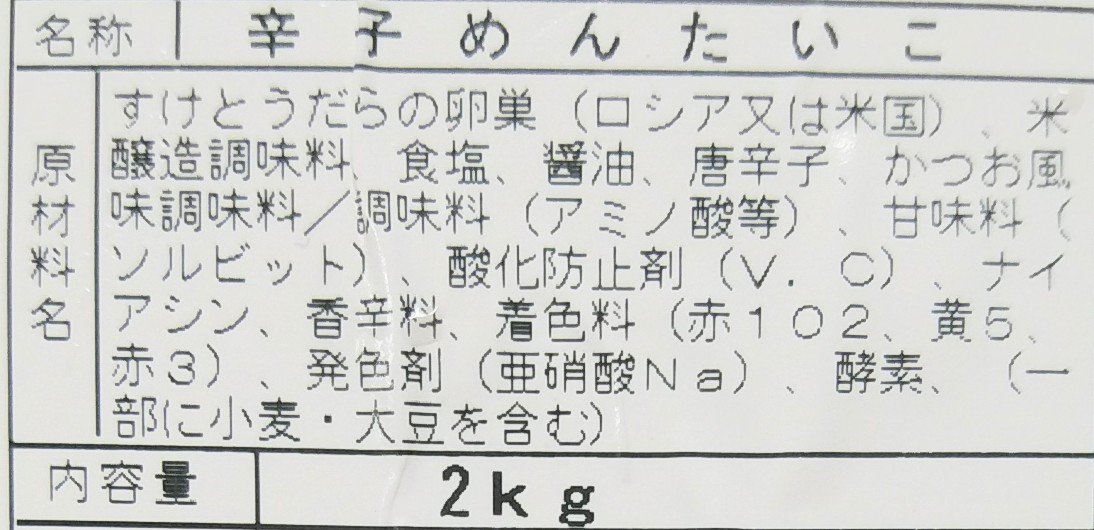 名称 辛子めんたいこ
原材料名
すけとうだらの卵巣（ロシア又は米国）、米
醸造調味料、食塩、醤油、唐辛子、かつお風
味調味料／調味料（アミノ酸等）、甘味料（
ソルビット）、酸化防止剤（Ｖ．Ｃ）、ナイ
アシン、香辛料、着色料（赤１０２、黄５、
赤３）、発色剤（亜硝酸Ｎａ）、酵素、（一
部に小麦・大豆を含む）
内容量 2ｋｇ